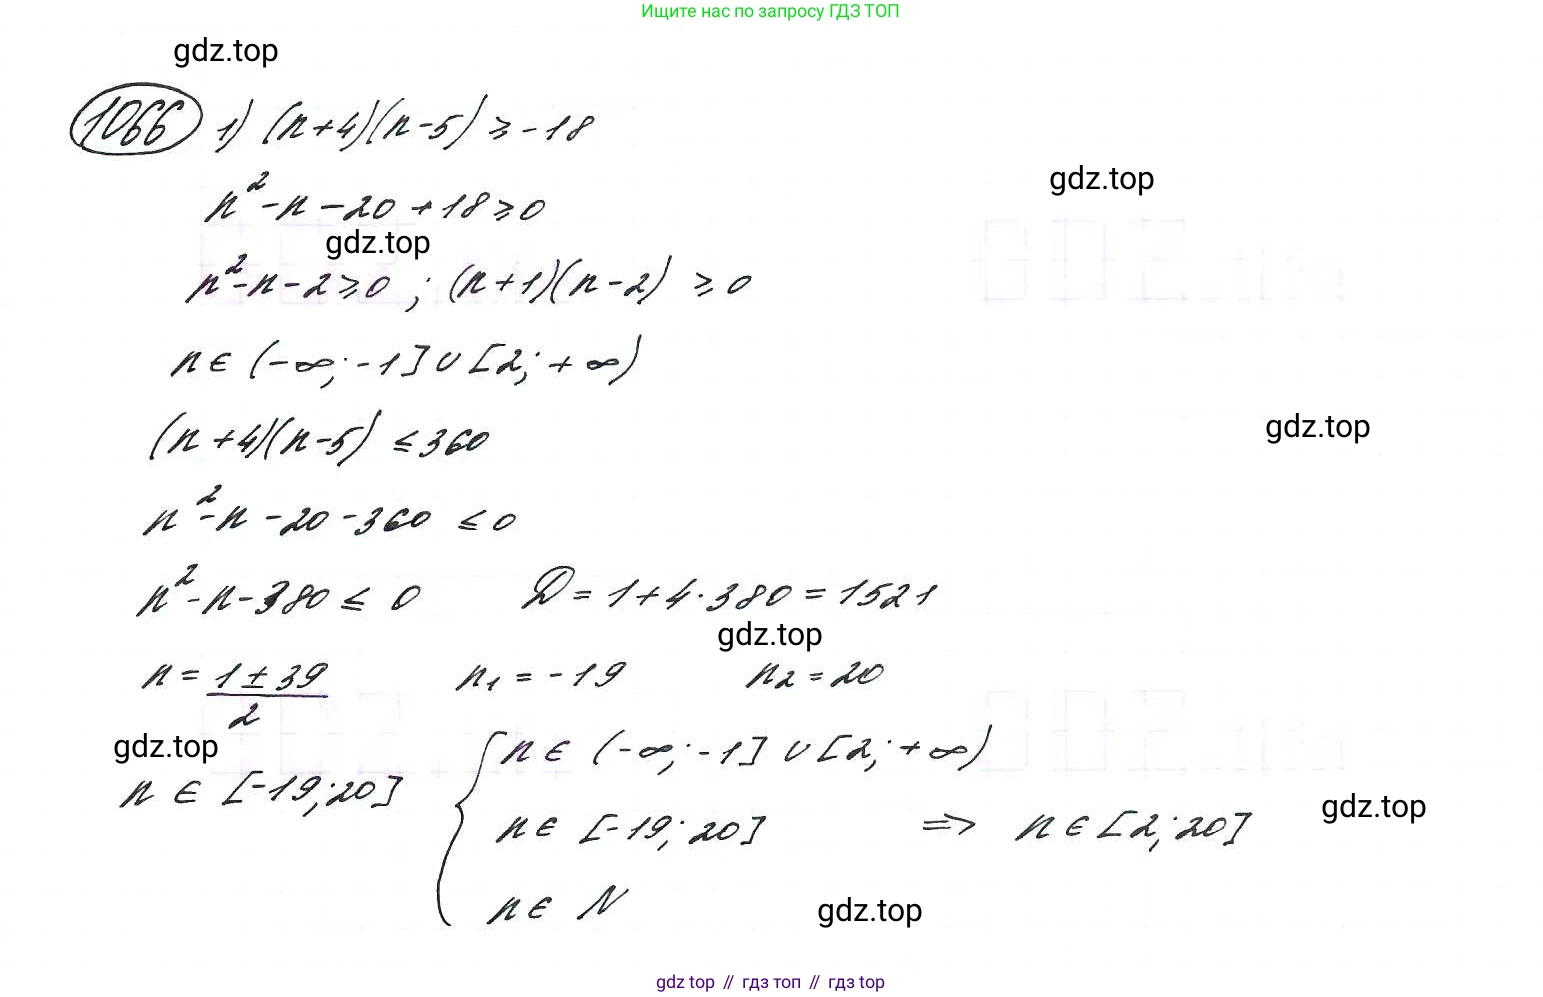 Ищите нас по запросу ГДЗ ТОП
gdz.top
1066 1) (n+4)(n-5) ⩾ -18
gdz.top
n² - n - 20 + 18 ⩾ 0
gdz.top
n² - n - 2 ⩾ 0 ; (n+1)(n-2) ⩾ 0
n ∈ (-∞; -1] ∪ [2; +∞)
(n+4)(n-5) ≤ 360
gdz.top
n² - n - 20 - 360 ≤ 0
n² - n - 380 ≤ 0 D = 1 + 4·380 = 1521
gdz.top
n = (1 ± 39)/2 n₁ = -19 n₂ = 20
gdz.top
n ∈ [-19; 20] { n ∈ (-∞; -1] ∪ [2; +∞)
n ∈ [-19; 20] => n ∈ [2; 20]
gdz.top
n ∈ N
gdz.top
gdz top // гдз топ // gdz top